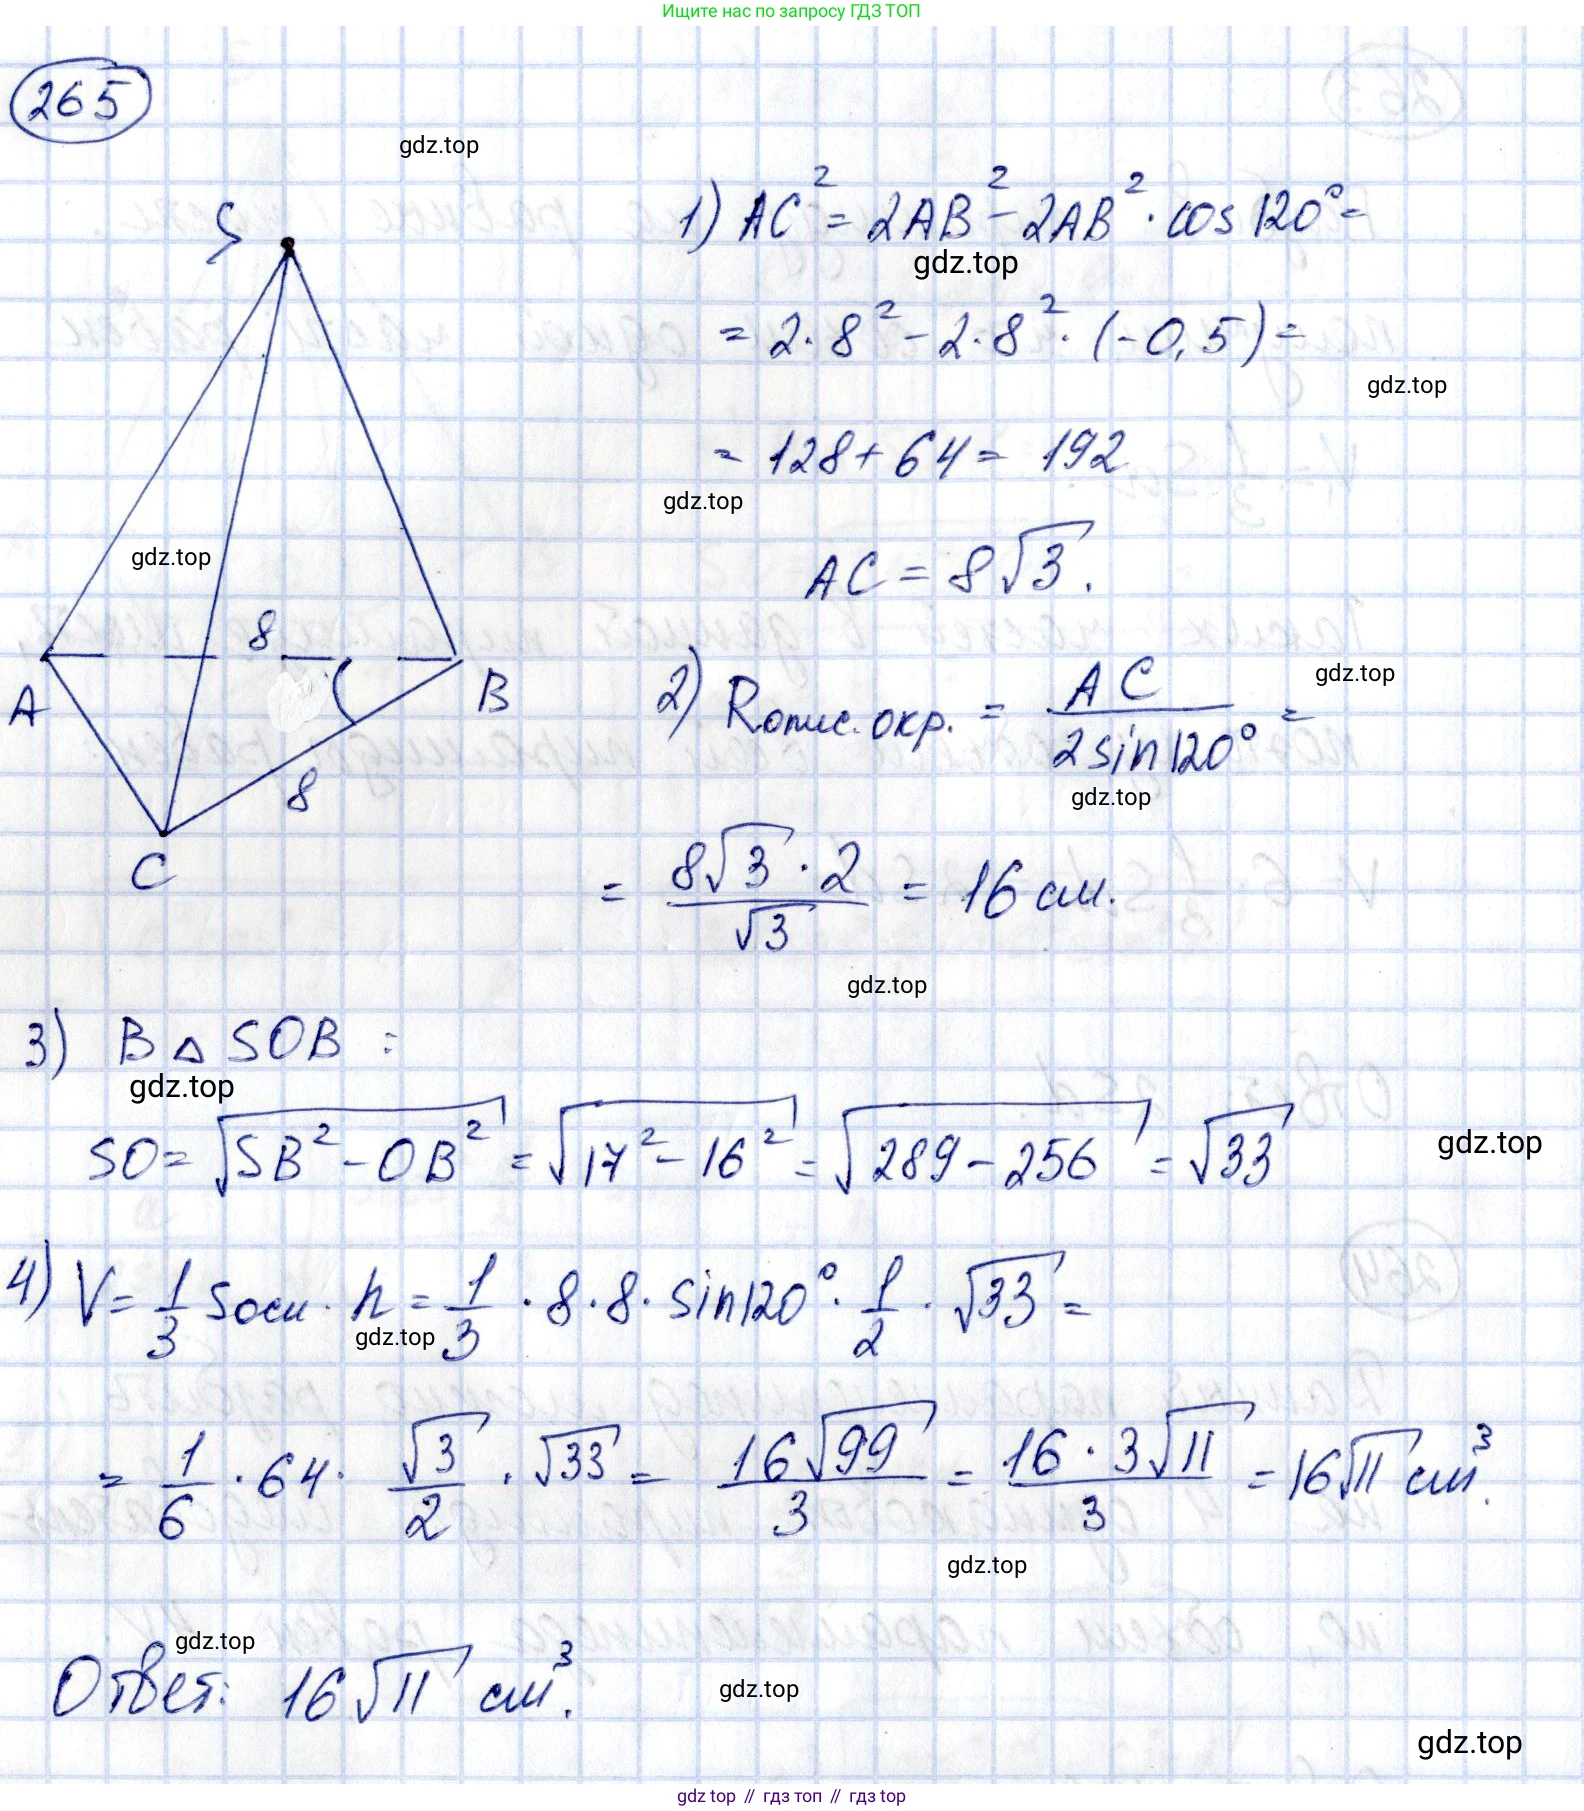 Ищите нас по запросу ГДЗ ТОП
265
gdz.top
S
1) AC² = 2AB² - 2AB² · cos 120° =
gdz.top
= 2 · 8² - 2 · 8² · (-0,5) =
gdz.top
= 128 + 64 = 192
gdz.top
gdz.top
AC = 8√3.
8
A
B
8
C
2) Rопис. окр. = AC / 2 sin 120° =
gdz.top
gdz.top
= 8√3 · 2 / √3 = 16 см.
gdz.top
3) В △ SOB :
gdz.top
SO = √(SB² - OB²) = √(17² - 16²) = √(289 - 256) = √33
gdz.top
4) V = 1/3 Sосн · h = 1/3 · 8 · 8 · sin 120° · 1/2 · √33 =
gdz.top
= 1/6 · 64 · √3/2 · √33 = 16√99 / 3 = 16 · 3√11 / 3 = 16√11 см³.
gdz.top
gdz.top
Ответ: 16√11 см³.
gdz.top
gdz.top
gdz top // гдз топ // гдз top